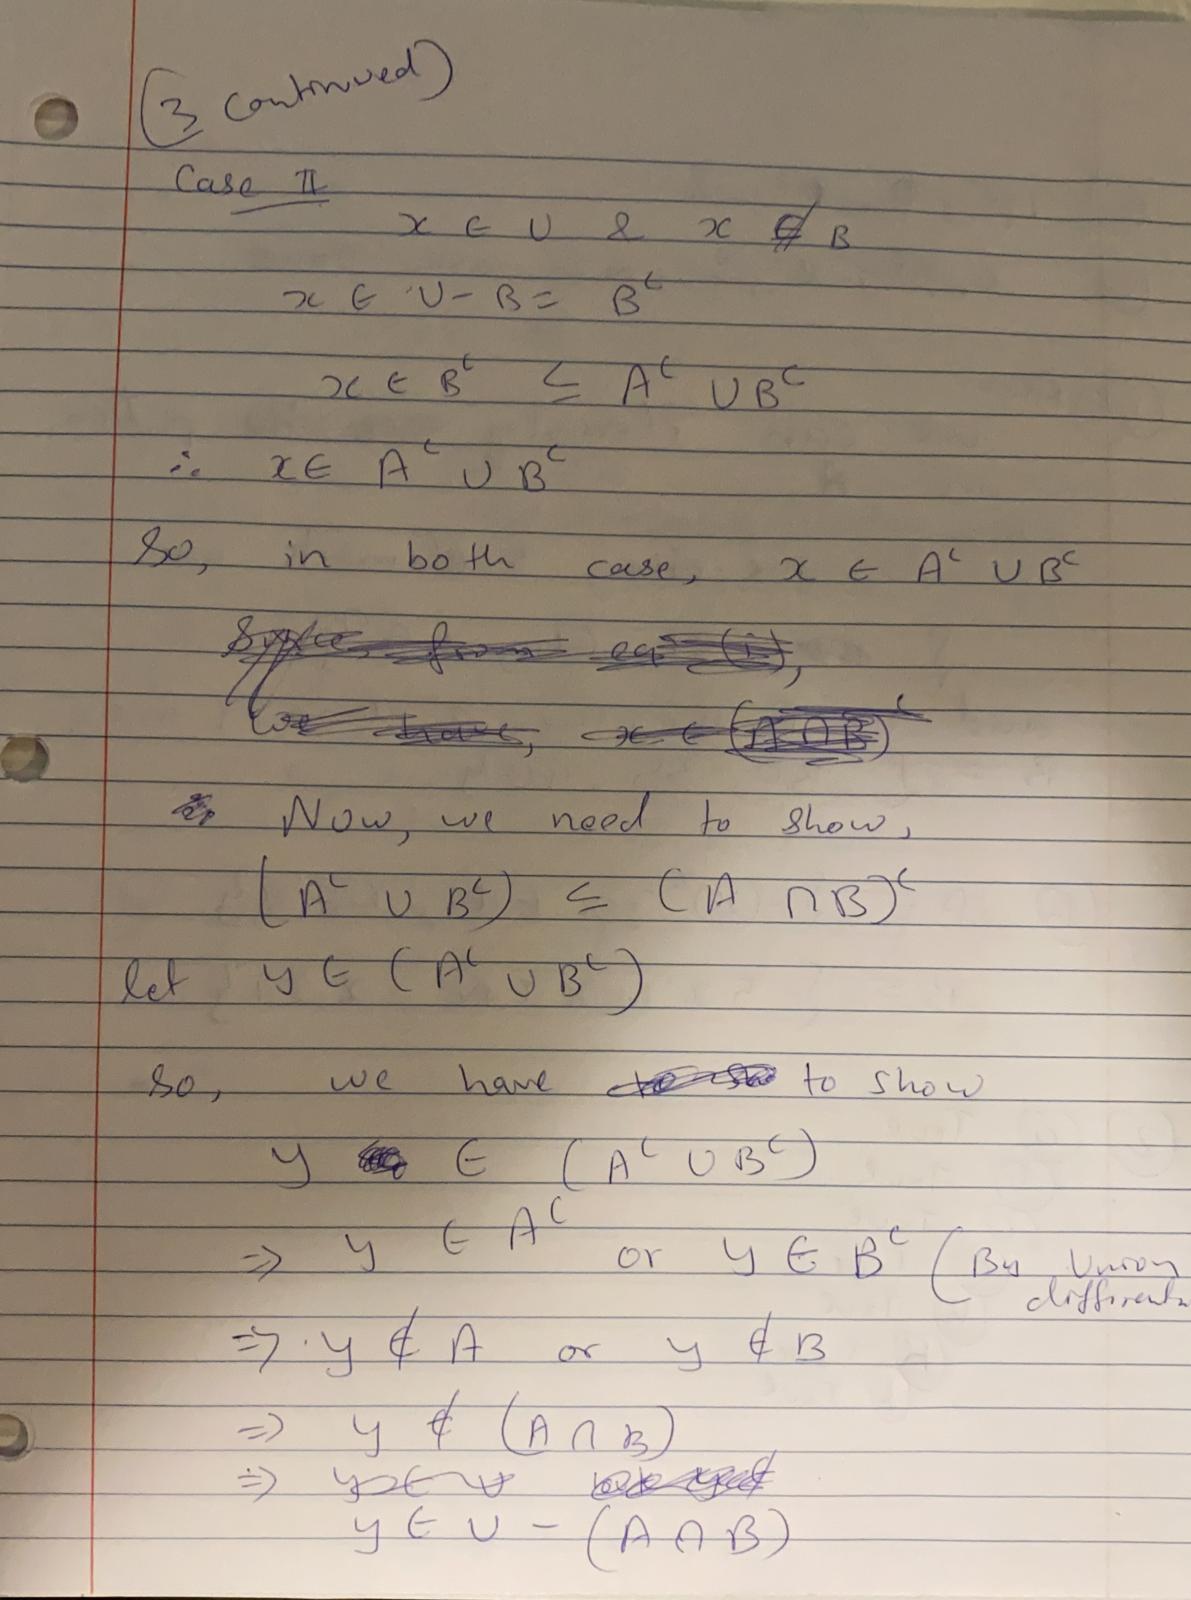 (3 continued)
Case II
x ∈ U & x ∉ B
x ∈ U - B = Bᶜ
x ∈ Bᶜ ⊆ Aᶜ ∪ Bᶜ
∴ x ∈ Aᶜ ∪ Bᶜ
So, in both case, x ∈ Aᶜ ∪ Bᶜ
from eqⁿ (i),
we have, x ∈ (A ∩ B)ᶜ
Now, we need to show,
(Aᶜ ∪ Bᶜ) ⊆ (A ∩ B)ᶜ
let y ∈ (Aᶜ ∪ Bᶜ)
So, we have to show
y ∈ (Aᶜ ∪ Bᶜ)
⇒ y ∈ Aᶜ or y ∈ Bᶜ (By Union
⇒ y ∉ A or y ∉ B
⇒ y ∉ (A ∩ B)
⇒ y ∈
y ∈ U - (A ∩ B)